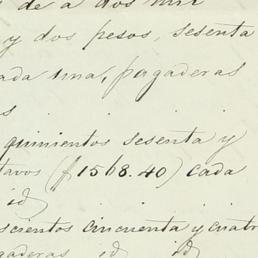 de a dos mil
y dos pesos, sesenta
cada una, pagaderas
s
quinientos sesenta y
tavos (f 1568.40) cada
id
scientos cincuenta y cuatro
gaderas id id